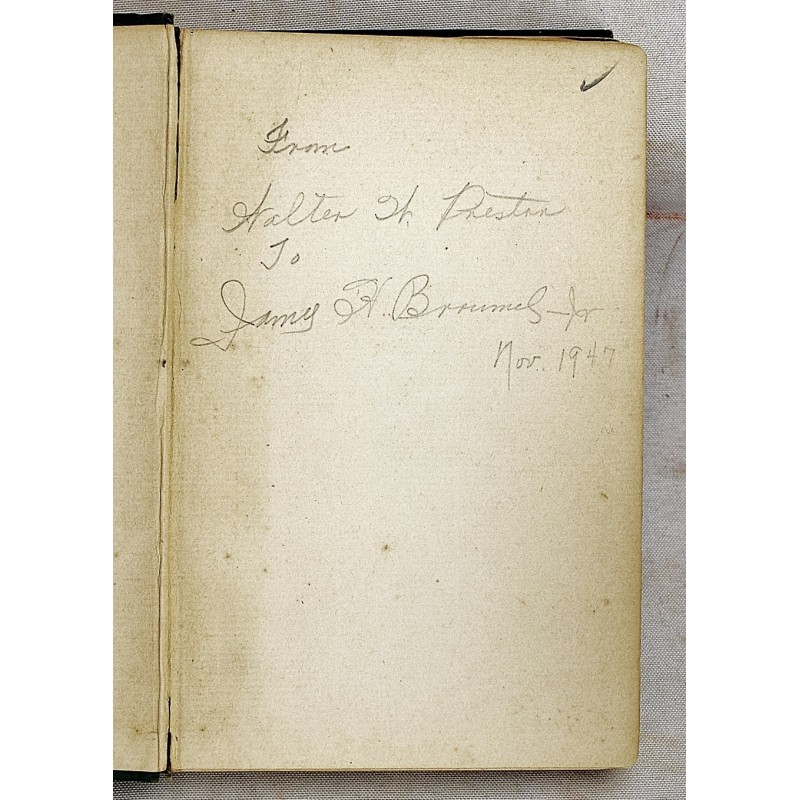 From
Walter W. Preston
To
James H. Broumel, Jr
Nov. 1947